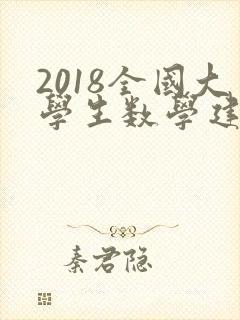 2018全國大
學生數學建
秦君隐